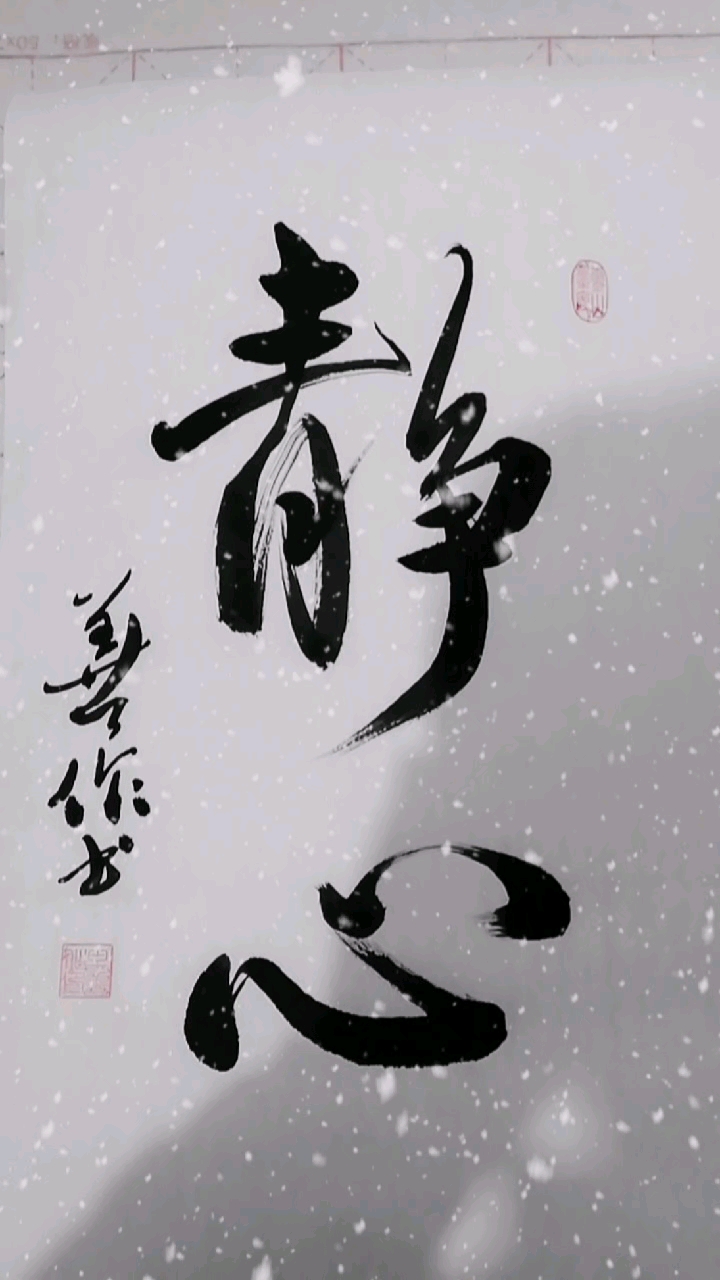 静心
善作书